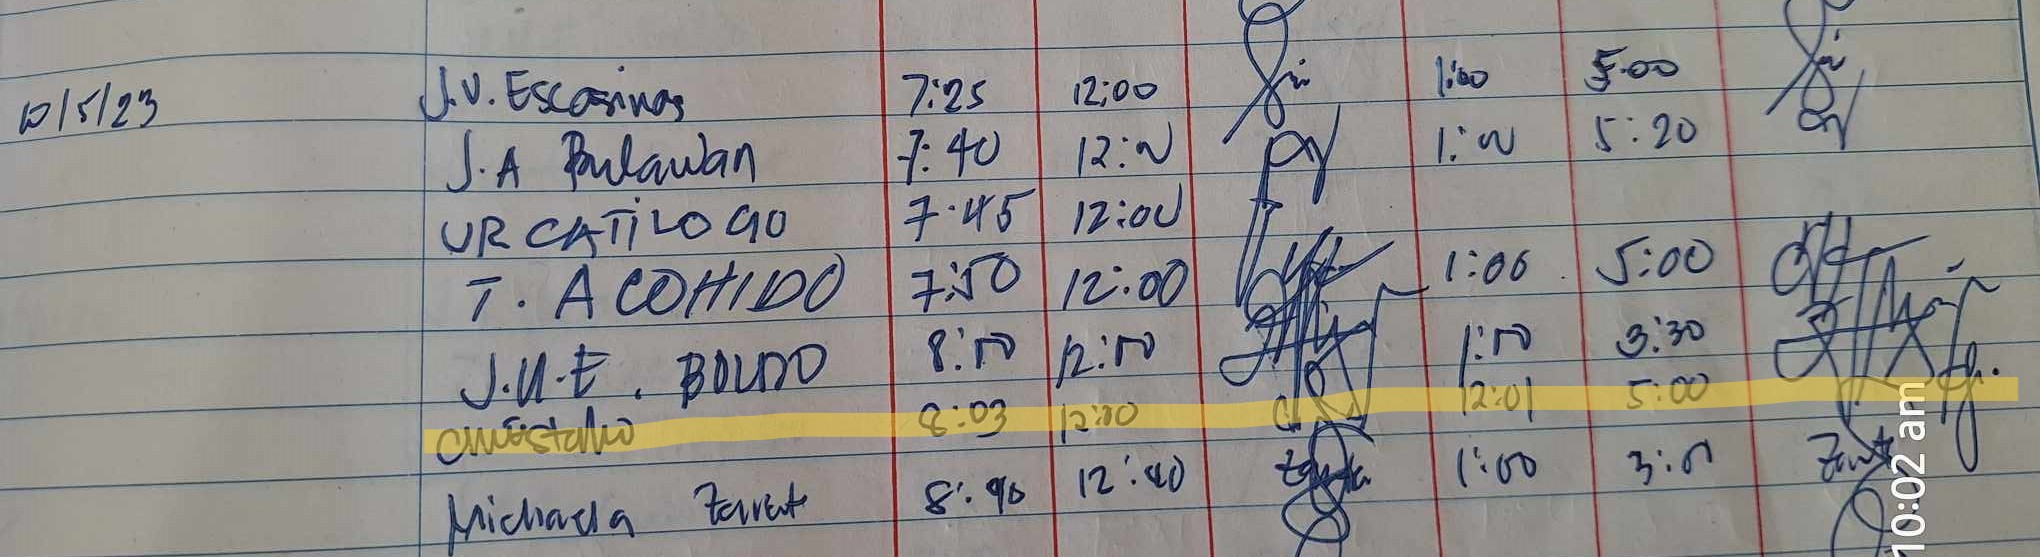 10/5/23 J.V. Escosinas 7:25 12:00 1:00 5:00
J.A Bulawan 7:40 12:00 1:00 5:20
UR CATILOGO 7:45 12:00
T. ACOHIDO 7:50 12:00 1:00 5:00
J.U.E. BOLDO 8:00 12:00 1:00 3:30
8:03 12:00 12:01 5:00
Michaela Zarate 8:40 12:40 1:00 3:00
10:02 am